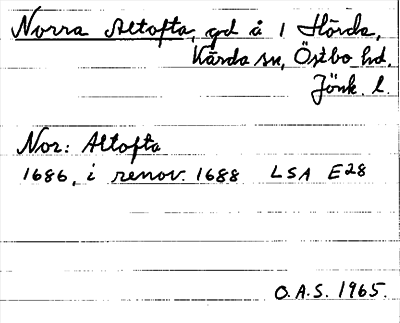 Norra Altofta, gd å 1 Hörda,
Kärda sn, Östbo hd.
Jönk. l.
Nor: Altofta
1686, i renov. 1688 LSA E28
O.A.S. 1965.